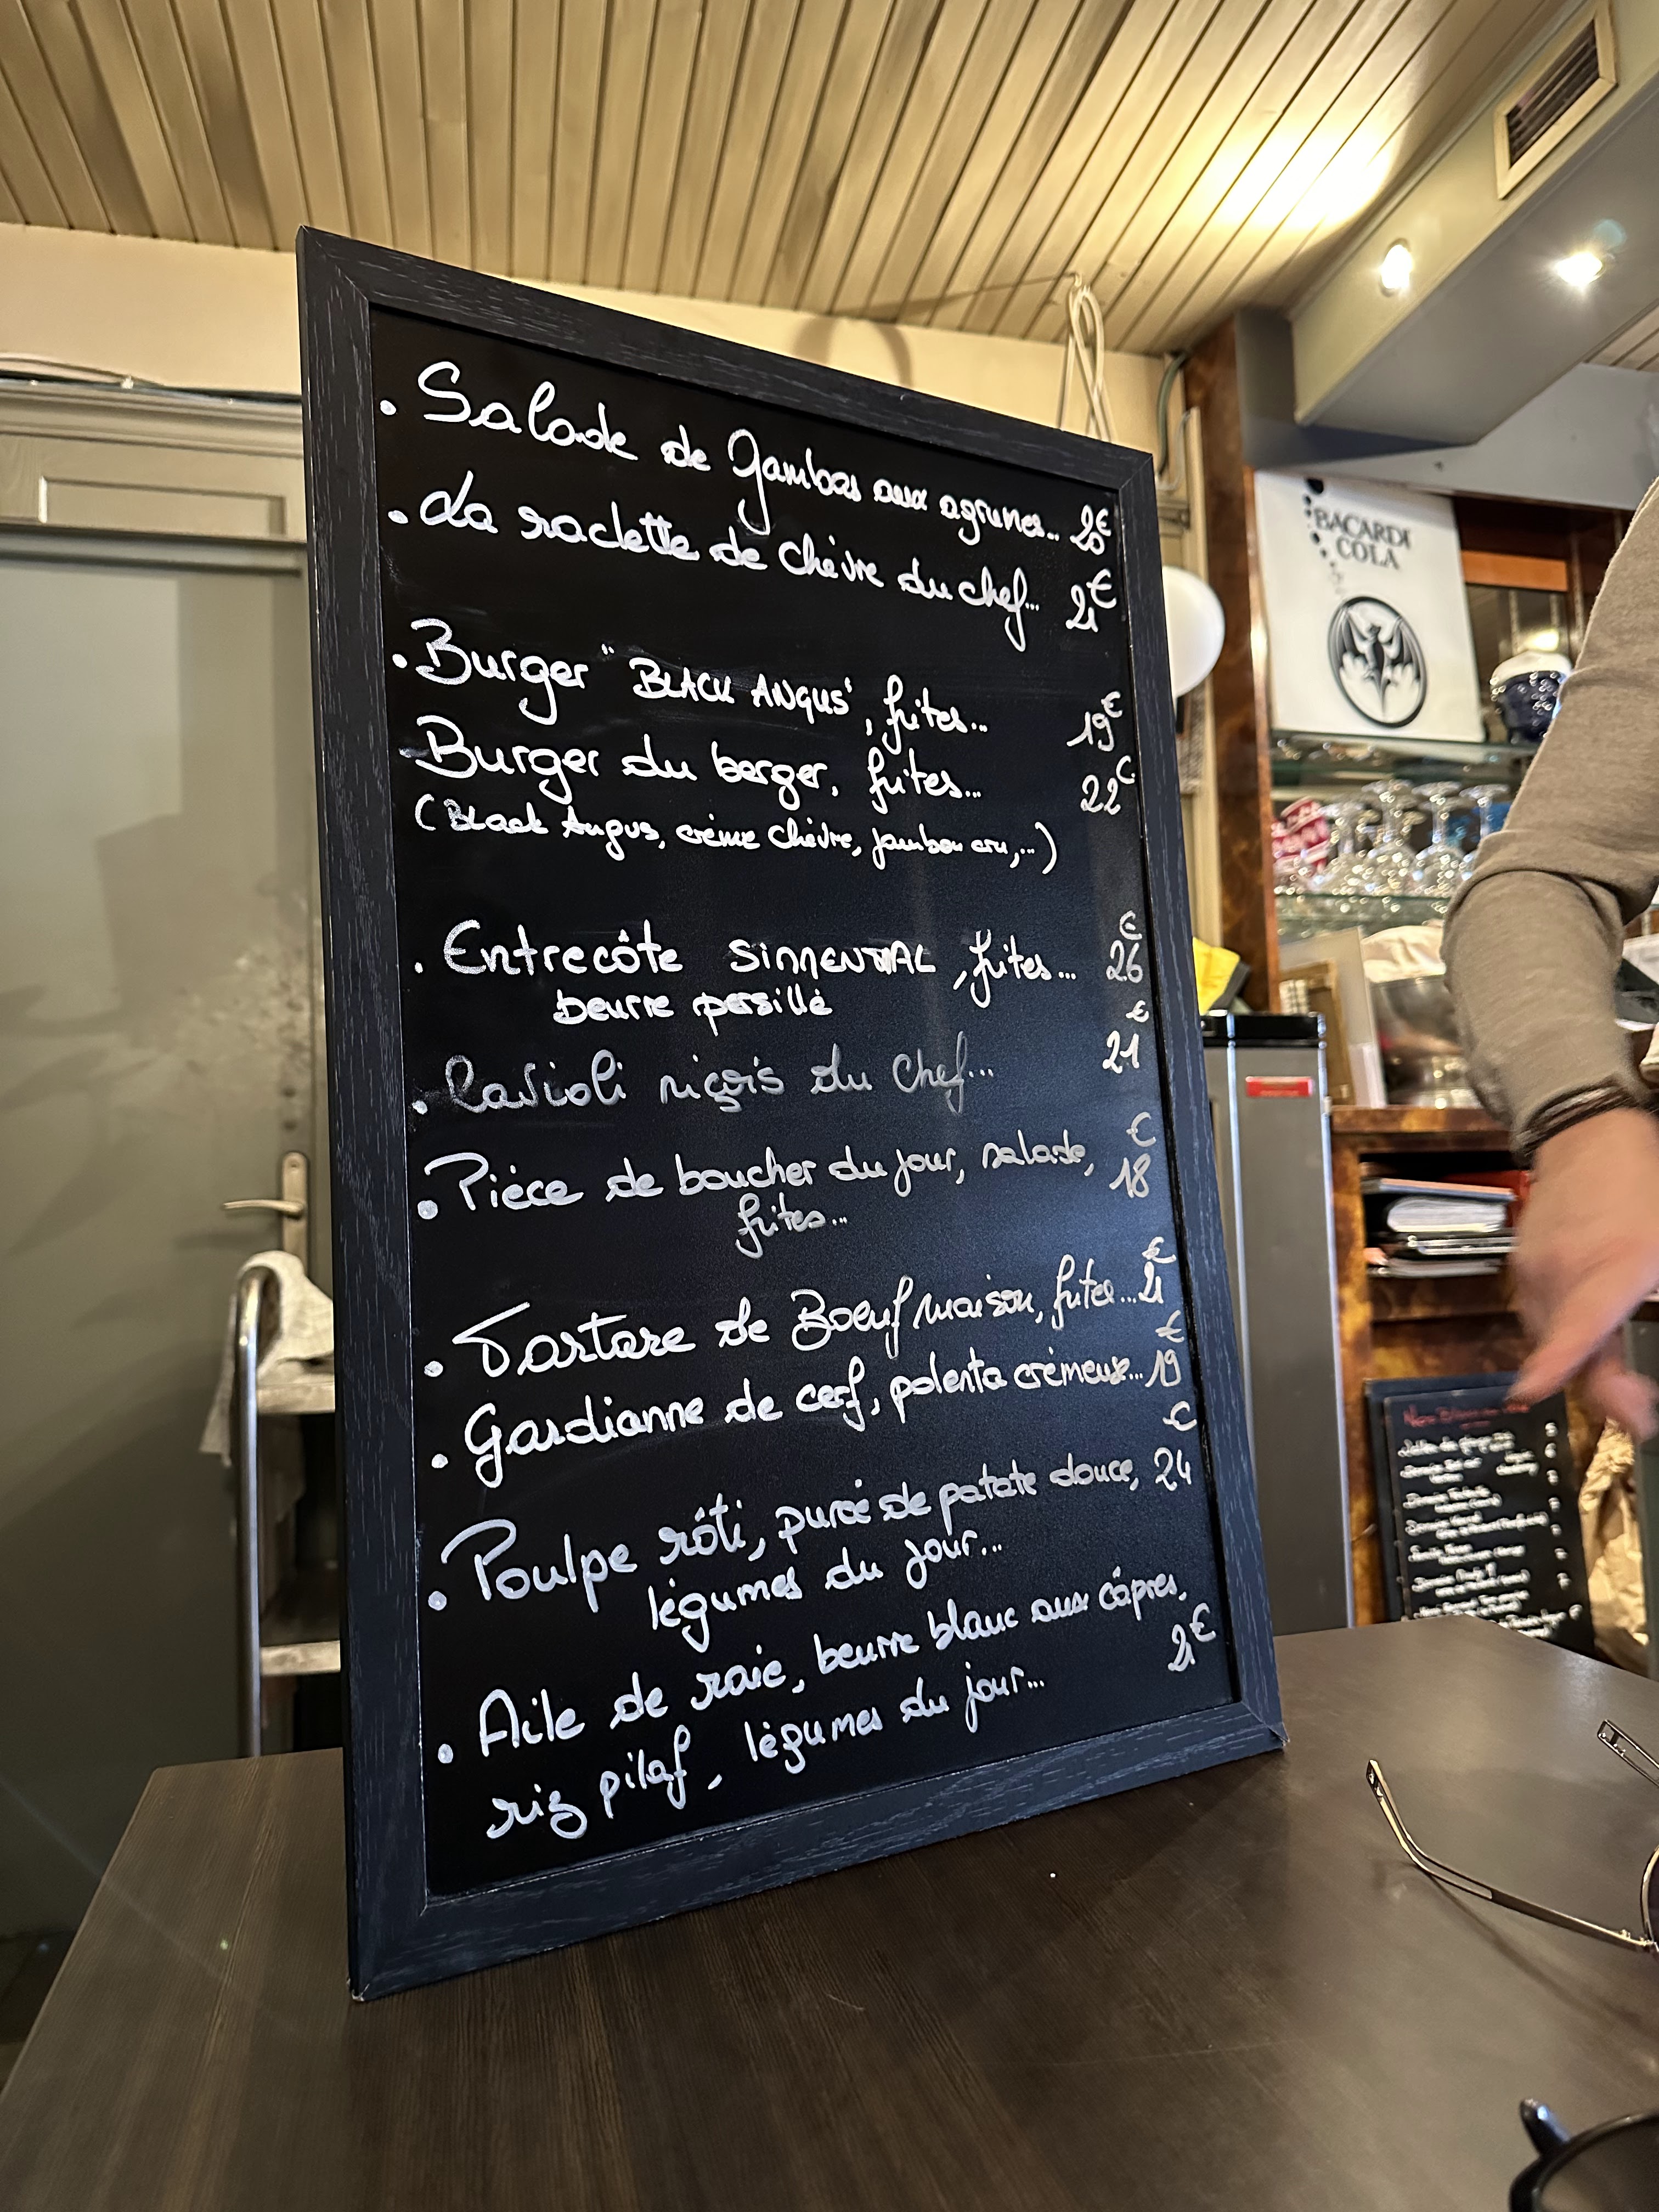 . Salade de Gambas aux agrumes.. 20€
. La raclette de chèvre du chef... 21€
. Burger "BLACK ANGUS", frites... 19€
Burger du berger, frites... 22€
(Black Angus, crème chèvre, jambon cru,...)
. Entrecôte SIMMENTAL, frites... 26€
beurre persillé
. Ravioli niçois du Chef... 21€
. Pièce de boucher du jour, salade, 18€
frites...
. Tartare de Boeuf maison, frites... 21€
. Gardianne de cerf, polenta crémeuse... 19€
. Poulpe rôti, purée de patate douce, 24€
légumes du jour...
. Aile de raie, beurre blanc aux câpres,
riz pilaf, légumes du jour... 21€
BACARDI
COLA